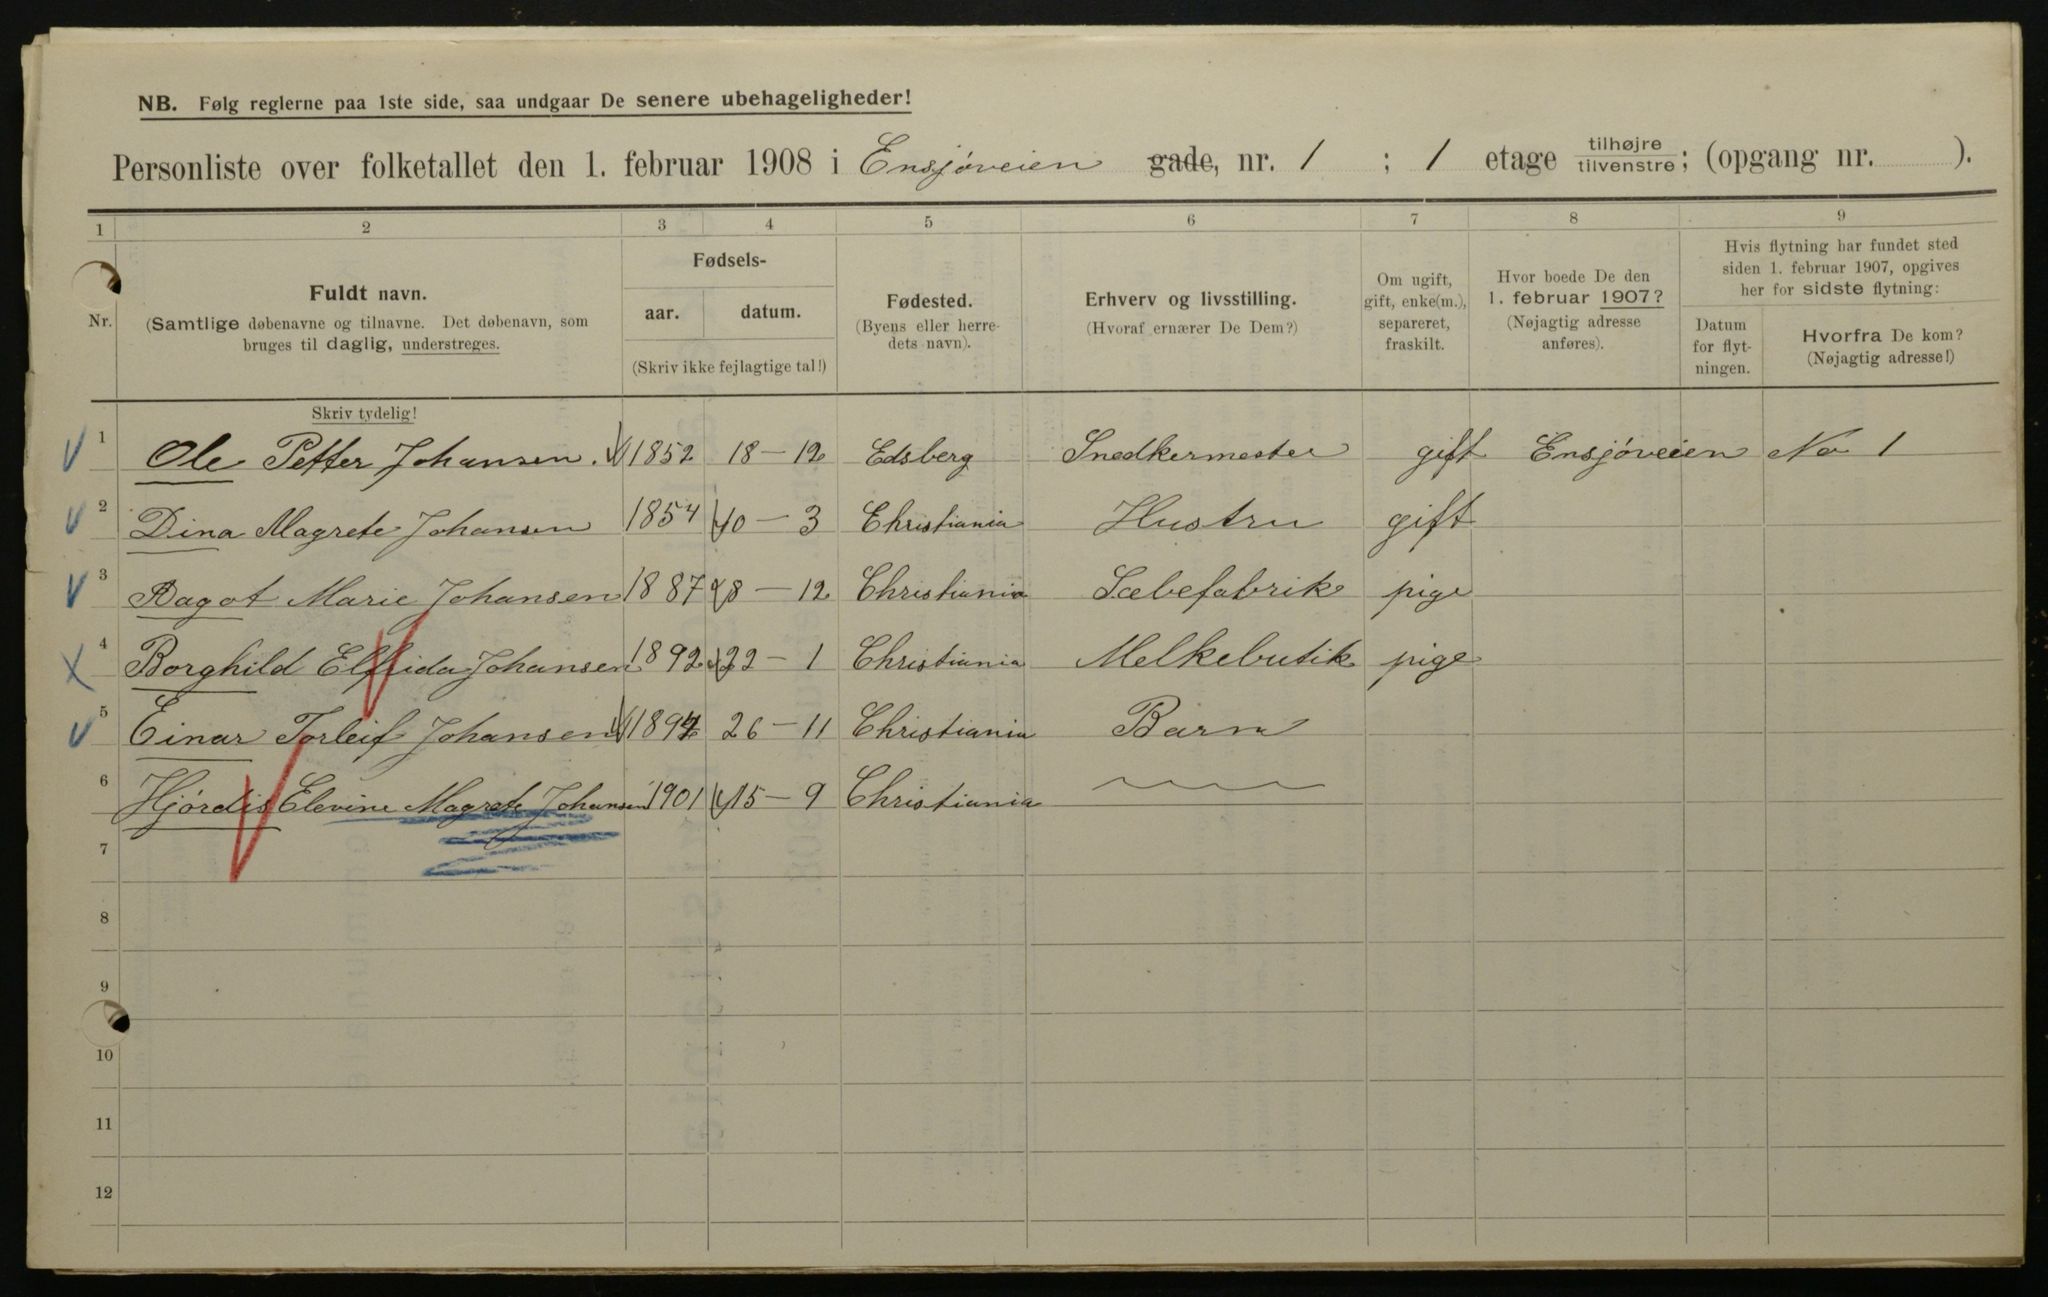 NB. Følg reglerne paa 1ste side, saa undgaar De senere ubehageligheder!
Personliste over folketallet den 1. februar 1908 i Ensjøveien gade, nr. 1 ; 1 etage tilhøjre tilvenstre; (opgang nr. ).
1 2 3 4 5 6 7 8 9
Nr.
Fuldt navn.
(Samtlige døbenavne og tilnavne. Det døbenavn, som
bruges til daglig, understreges.
Skriv tydelig!
Fødsels-
aar. datum.
(Skriv ikke fejlagtige tal!)
Fødested.
(Byens eller herre-
dets navn).
Erhverv og livsstilling.
(Hvoraf ernærer De Dem?)
Om ugift,
gift, enke(m.),
separeret,
fraskilt.
Hvor boede De den
1. februar 1907?
(Nøjagtig adresse
anføres).
Hvis flytning har fundet sted
siden 1. februar 1907, opgives
her for sidste flytning:
Datum
for flyt-
ningen.
Hvorfra De kom?
(Nøjagtig adresse!)
1 Ole Petter Johansen. 1852 18-12 Edsberg Snedkermester gift Ensjøveien No 1
2 Dina Magrete Johansen 1854 10-3 Christiania Hustru gift
3 Dagot Marie Johansen 1887 8-12 Christiania Sæbefabrik pige
4 Borghild Elfrida Johansen 1892 22-1 Christiania Melkebutik pige
5 Einar Torleif Johansen 1894 26-11 Christiania Barn
6 Hjørdis Elevine Magrete Johansen 1901 15-9 Christiania
7
8
9
10
11
12